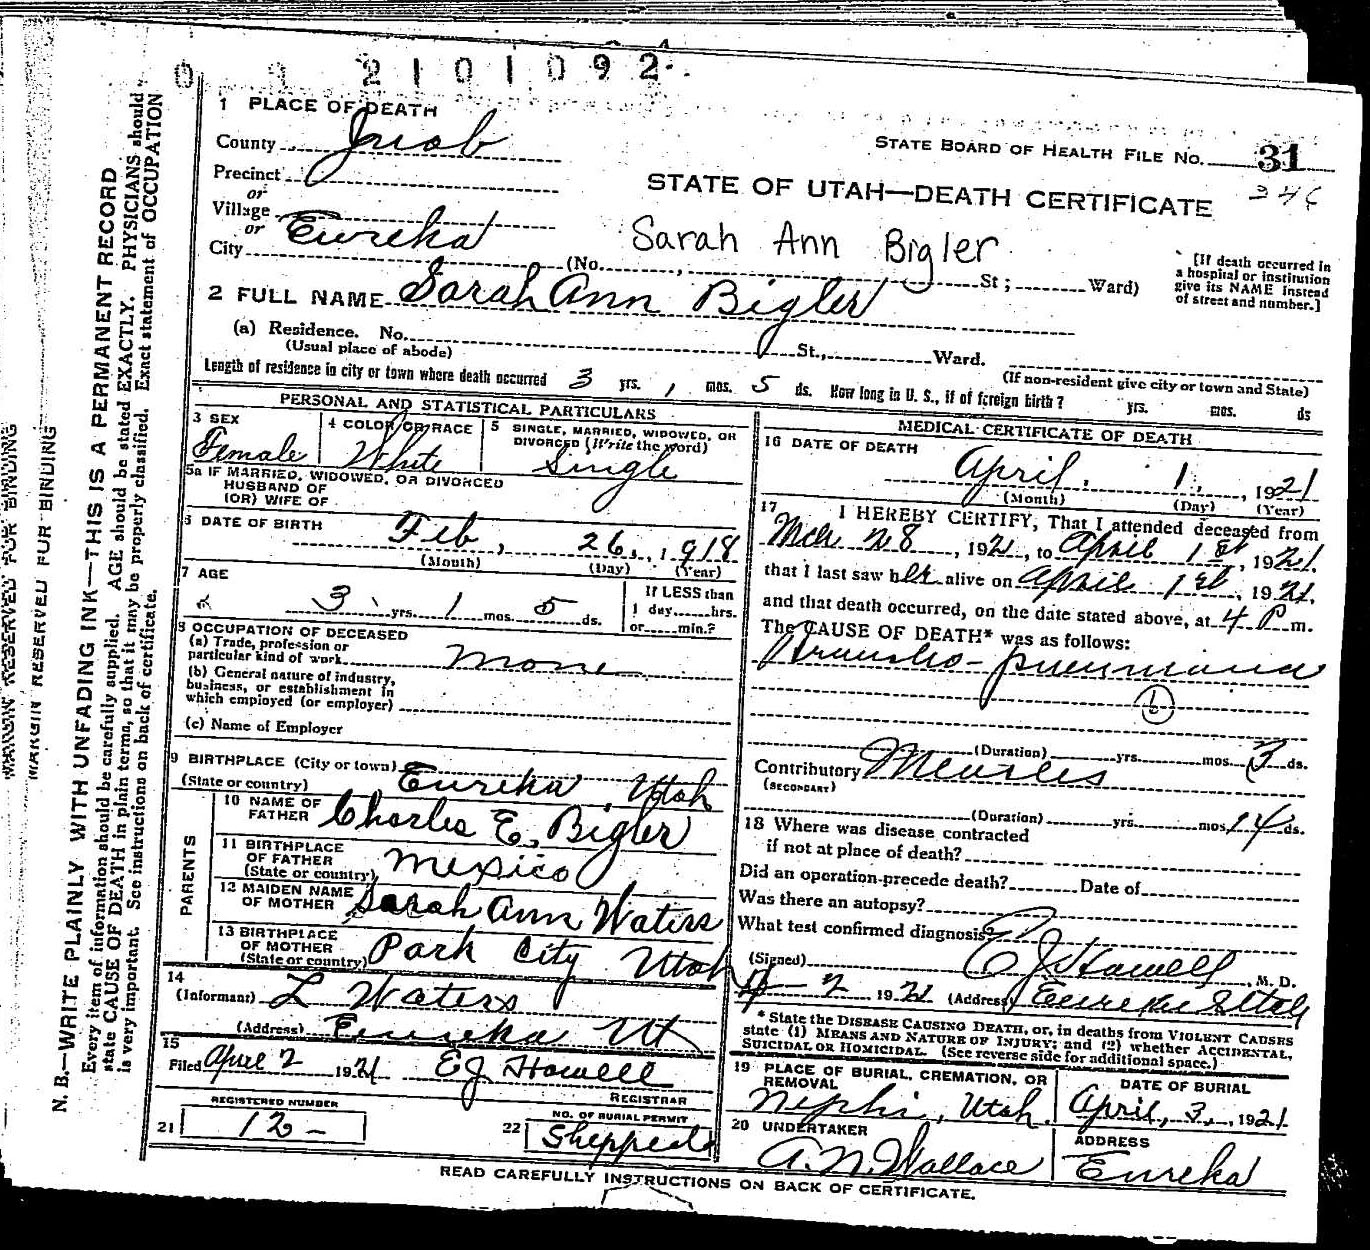 0 3 2 1 0 1 0 9 2
1 PLACE OF DEATH
County Juab
STATE BOARD OF HEALTH FILE No. 31
346
Precinct
or
Village
or
City Eureka
STATE OF UTAH—DEATH CERTIFICATE
Sarah Ann Bigler
(No. , St ; Ward)
[If death occurred in
a hospital or institution
give its NAME instead
of street and number.]
2 FULL NAME Sarah Ann Bigler
(a) Residence. No. St., Ward.
(Usual place of abode)
(If non-resident give city or town and State)
Length of residence in city or town where death occurred 3 yrs. 1 mos. 5 ds. How long in U. S., if of foreign birth? yrs. mos. ds
PERSONAL AND STATISTICAL PARTICULARS
3 SEX
Female
4 COLOR OR RACE
White
5 SINGLE, MARRIED, WIDOWED, OR
DIVORCED (Write the word)
Single
5a IF MARRIED, WIDOWED, OR DIVORCED
HUSBAND OF
(OR) WIFE OF
6 DATE OF BIRTH Feb, 26, 1918
(Month) (Day) (Year)
7 AGE
3 yrs. 1 mos. 5 ds.
If LESS than
1 day hrs.
or min.?
8 OCCUPATION OF DECEASED
(a) Trade, profession or
particular kind of work None
(b) General nature of industry,
business, or establishment in
which employed (or employer)
(c) Name of Employer
9 BIRTHPLACE (City or town) Eureka, Utah
(State or country)
PARENTS
10 NAME OF
FATHER Charles E. Bigler
11 BIRTHPLACE
OF FATHER
(State or country) Mexico
12 MAIDEN NAME
OF MOTHER Sarah Ann Waters
13 BIRTHPLACE
OF MOTHER
(State or country) Park City Utah
14
(Informant) L Waters
(Address) Eureka Ut
15
Filed April 2 1921 EJ Howell
REGISTRAR
REGISTERED NUMBER
21 12-
NO. OF BURIAL PERMIT
22 Shipped
MEDICAL CERTIFICATE OF DEATH
16 DATE OF DEATH
April, 1, , 1921
(Month) (Day) (Year)
17 I HEREBY CERTIFY, That I attended deceased from
Mch 28, 1921, to April 1st, 1921.
that I last saw her alive on April 1st, 1921.
and that death occurred, on the date stated above, at 4 P m.
The CAUSE OF DEATH* was as follows:
Broncho-pneumonia
b
(Duration) yrs. mos. 3 ds.
Contributory Measles
(SECONDARY)
(Duration) yrs. mos. 14 ds.
18 Where was disease contracted
if not at place of death?
Did an operation precede death? Date of
Was there an autopsy?
What test confirmed diagnosis?
(Signed) E J Howell, M. D.
4-2 1921 (Address) Eureka Utah
* State the DISEASE CAUSING DEATH, or, in deaths from VIOLENT CAUSES
state (1) MEANS AND NATURE OF INJURY; and (2) whether ACCIDENTAL,
SUICIDAL OR HOMICIDAL. (See reverse side for additional space.)
19 PLACE OF BURIAL, CREMATION, OR
REMOVAL
Nephi, Utah.
DATE OF BURIAL
April, 3, 1921
20 UNDERTAKER
A. N. Wallace
ADDRESS
Eureka
READ CAREFULLY INSTRUCTIONS ON BACK OF CERTIFICATE.
MARGIN RESERVED FOR BINDING
MARGIN RESERVED FOR BINDING
N. B.—WRITE PLAINLY WITH UNFADING INK—THIS IS A PERMANENT RECORD
Every item of information should be carefully supplied. AGE should be stated EXACTLY. PHYSICIANS should
state CAUSE OF DEATH in plain terms, so that it may be properly classified. Exact statement of OCCUPATION
is very important. See instructions on back of certificate.